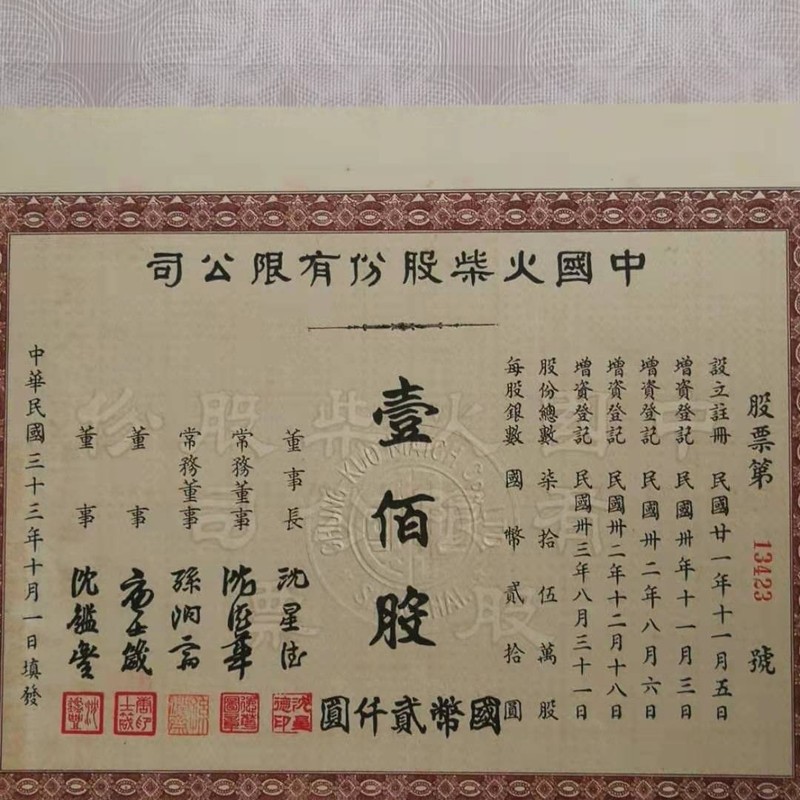 中國火柴股份有限公司
股票第 13423 號
設立註冊 民國廿一年十一月五日
增資登記 民國卅年十一月三日
增資登記 民國卅二年八月六日
增資登記 民國卅二年十二月十八日
增資登記 民國卅三年八月三十一日
股份總數 柒拾伍萬股
每股銀數 國幣貳拾圓
壹佰股
國幣貳仟圓
董事長 沈星德
常務董事
常務董事 孫潤齋
董事 高士箴
董事 沈鑑堂
中華民國三十三年十月一日填發
中國火柴股份
CHUNG KUO MATCH